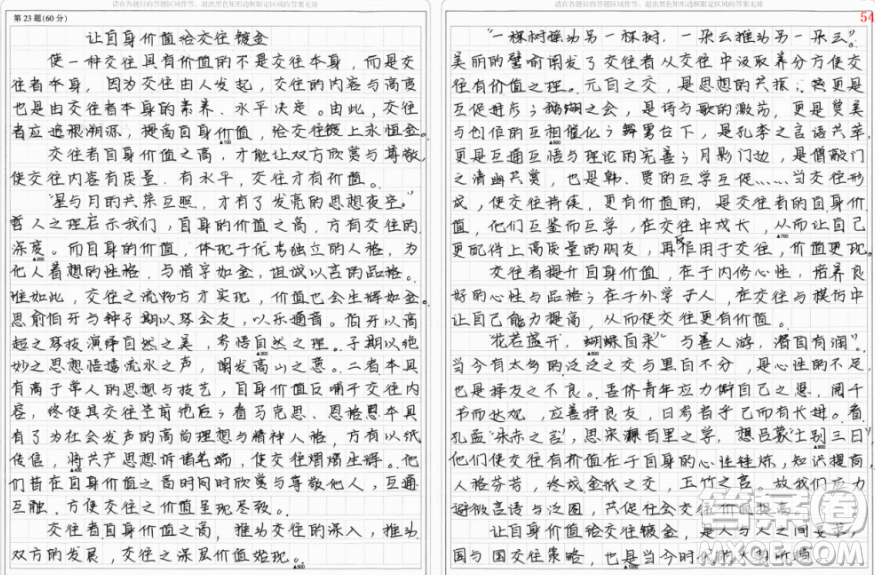 请在各题目的答题区域作答，超出黑色矩形边框限定区域的答案无效
第23题(60分)
让自身价值给交往镀金
使一种交往具有价值的不是交往本身，而是交
往者本身，因为交往由人发起，交往的内容与高度
也是由交往者本身的素养、水平决定。由此，交往
者应追根溯源，提高自身价值，给交往镀上永恒金。
交往者自身价值之高，才能让双方欣赏与尊敬，
使交往内容有质量、有水平，交往才有价值。
"星与月的共荣互照，才有了发亮的思想夜空。"
哲人之理启示我们，自身的价值之高，方有交往的
深度。而自身的价值，体现于优秀独立的人格，为
他人着想的性格，与惜字如金、坦诚以言的品格。
唯如此，交往之流畅方才实现，价值也会生辉如金。
思俞伯牙与钟子期以琴会友，以乐通音。伯牙以高
超之琴技演绎自然之美，考悟自然之理。子期以绝
妙之思想悟透流水之声，阐发高山之意。二者本具
有高于常人的思想与技艺，自身价值反哺于交往内
容，终使其交往空前绝后；看马克思、恩格思本具
有了为社会发声的高尚理想与精神人格，方有以纸
传信，将共产思想诉诸笔端，使交往熠熠生辉。他
们皆在自身价值之高时同时欣赏与尊敬他人，互通
互融，方使交往之价值呈现尽致。
交往者自身价值之高，推为交往的深入，推动
双方的发展，交往之深层价值始现。
请在各题目的答题区域作答，超出黑色矩形边框限定区域的答案无效
54
"一棵树摇动另一棵树，一朵云推动另一朵云"。
美丽的譬喻阐发了交往者从交往中汲取养分方使交
往有价值之理。元白之交，是思想的共振，然更是
互促进步；之会，是诗与歌的激荡，更是赞美
与创作的互相催化；台下，是孔李之言语共萃，
更是互通互悟与理论的完善；月影门边，是僧敲门
之清幽共赏，也是韩、贾的互学互促……当交往形
成，使交往持续，更有价值的，是交往者的自身价
值，他们互鉴而互学，在交往中成长，从而让自己
更配得上高质量的朋友，再反作用于交往，价值更现。
交往者提升自身价值，在于内修心性，培养良
好的心性与品格；在于外学于人，在交往与模仿中
让自己能力提高，从而使交往更有价值。
"花若盛开，蝴蝶自来""与善人游，潜自有润"。
当今有太多的泛泛之交与黑白不分，是心性的不足，
也是择友之不良。吾侪青年应力修自己之恶，阅千
书而达观，应善择良友，日省吾于己而有长进。看
孔孟，思宋濂百里之学，想吕蒙"士别三日"，
他们使交往有价值在于自身的心性锤炼，知识提高，
人格芬芳，终成金纸之交，玉竹之言。故我们应力
避微言语与泛图，共促社会交往价值而提高。
让自身价值给交往镀金，是人与人之间要求，
国与国交往策略，也是当今时代的大势所趋
答案圈